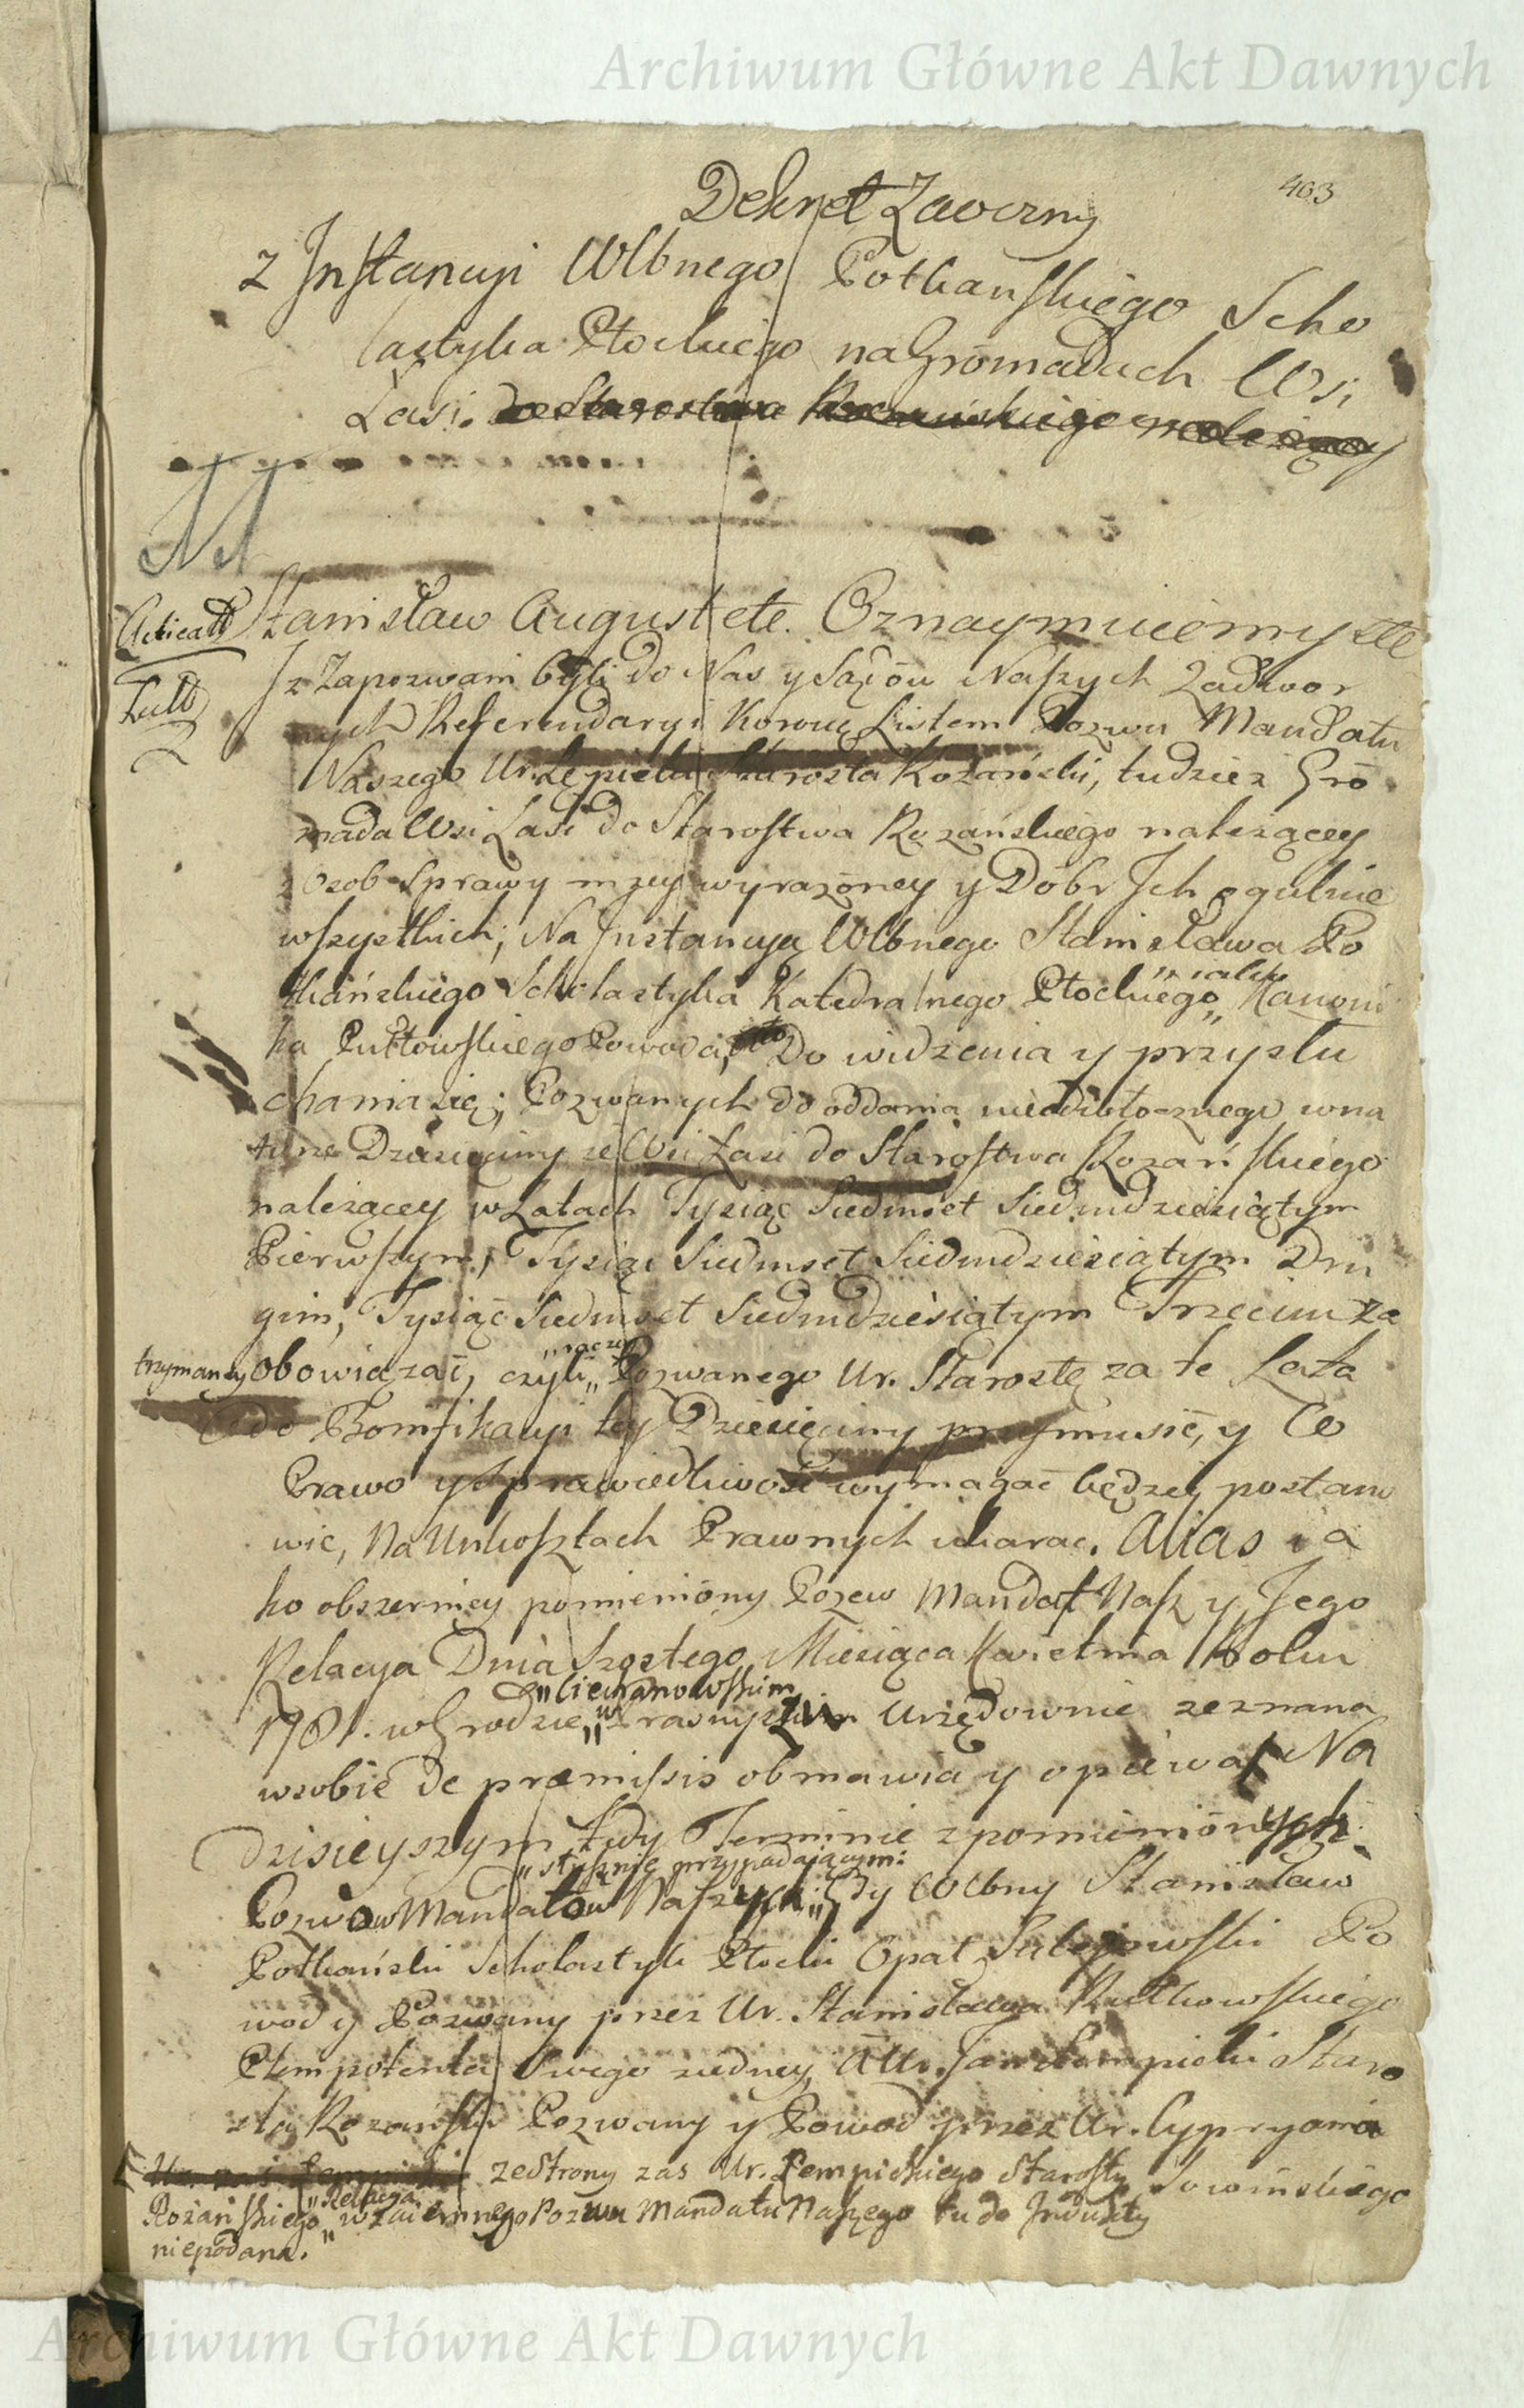 Archiwum Główne Akt Dawnych
403
Dekret Zaoczny
z Jnstancyi Wlbnego Potkanskiego Scho
lastyka Płockiego na Gromadach Wsi
Łasi. do Starostwa Rozanskiego należącey
Stanisław August etc. Oznaymuiemy etc
Jż Zapozwani byli do Nas y Sądów Naszych Zadwor
nych Referendaryi Koronę Listem Pozwu Mandatu
Naszego Ur. Starosta Rozański, tudzież Gro
mada Wsi Łasi do Starostwa Rozańskiego należącey
z Osob Sprawy nizey wyrazoney y Dóbr Jch ogulnie
wszystkich; Na Jnstancyą Wlbnego Stanisława Po
tkańskiego Scholastyka Katedralnego Płockiego, Kanoni
ka Pułtowskiego Powoda, Do widzenia y przysłu
chania się; Pozwanych do oddania nieodwłocznego wna
turze Dziesięciny ze Wsi Łasi do Starostwa Rozańskiego
należącey w Latach Tysiąc Siedmset Siedmdziesiątym
Pierwszym, Tysiąc Siedmset Siedmdziesiątym Dru
gim, Tysiąc Siedmset Siedmdziesiątym Trzecim za
trzymaney obowiązać, czyli „raczey„ Pozwanego Ur. Starostę za te Lata
do Bonifikacyi tey Dziesięciny przymusić, y Co
Prawo y Sprawiedliwość wymagać będzie, postano
wić, Na Unkosztach Prawnych ukarać. Alias ia
ko obszerniey pomieniony Pozew Mandat Nasz y Jego
Relacya Dnia Szostego Miesiąca Kwietnia Roku
„Ciechanowskim
1781. w Grodzie „ Urzędownie zeznana
wsobie de præmissis obmawia y opiewa. Na
Dzisieyszym tedy Terminie z pomienionych
„słusznie przypadaiącym:
Pozwow Mandatow Naszych „ Gdy Wlbny Stanisław
Potkański Scholastyk Płocki Opat Sulejowski Po
wod y Pozwany przez Ur. Stanisława Rutkowskiego
Plenipotenta Swego z iedney, a Ur. Jan Łempicki Staro
sta Rozański Pozwany y Powod przez Ur. Cypryana
Ur. zaś Łempicki ze Strony zas Ur. Łempickiego Starosty Sowińskiego
Rozańskiego „Relacya„ wzaiemnego Pozwu Mandatu Naszego tu do Jndukty
niepodana.
Archiwum Główne Akt Dawnych